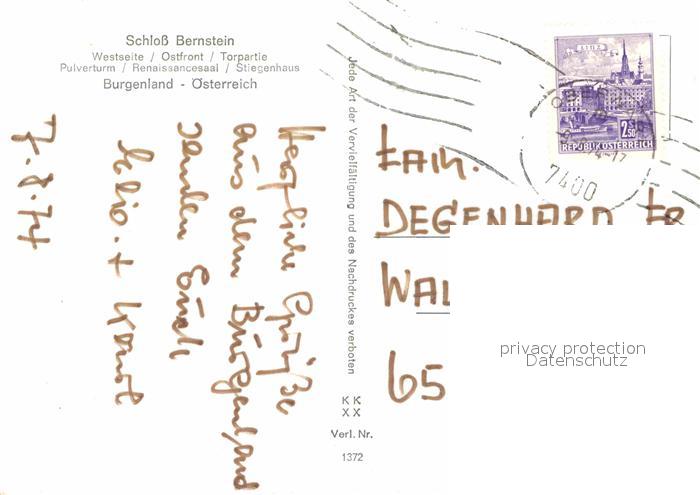 Schloß Bernstein
Westseite / Ostfront / Torpartie
Pulverturm / Renaissancesaal / Stiegenhaus
Burgenland - Österreich
7.8.74
Herzliche Grüße
aus dem Burgenland
senden Euch
Jede Art der Vervielfältigung und des Nachdruckes verboten
K K
X X
Verl. Nr.
1372
LINZ
2.50
REPUBLIK ÖSTERREICH
7400
FAM.
DEGENHARD
WAL
65
privacy protection
Datenschutz